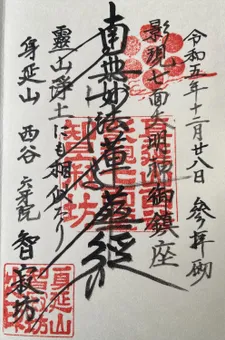 令和五年十二月廿八日 参拝砌
影現七面大明神御鎮座
南無妙法蓮華経
霊山浄土にも相似たり
身延山 西谷 智寂坊
身延山